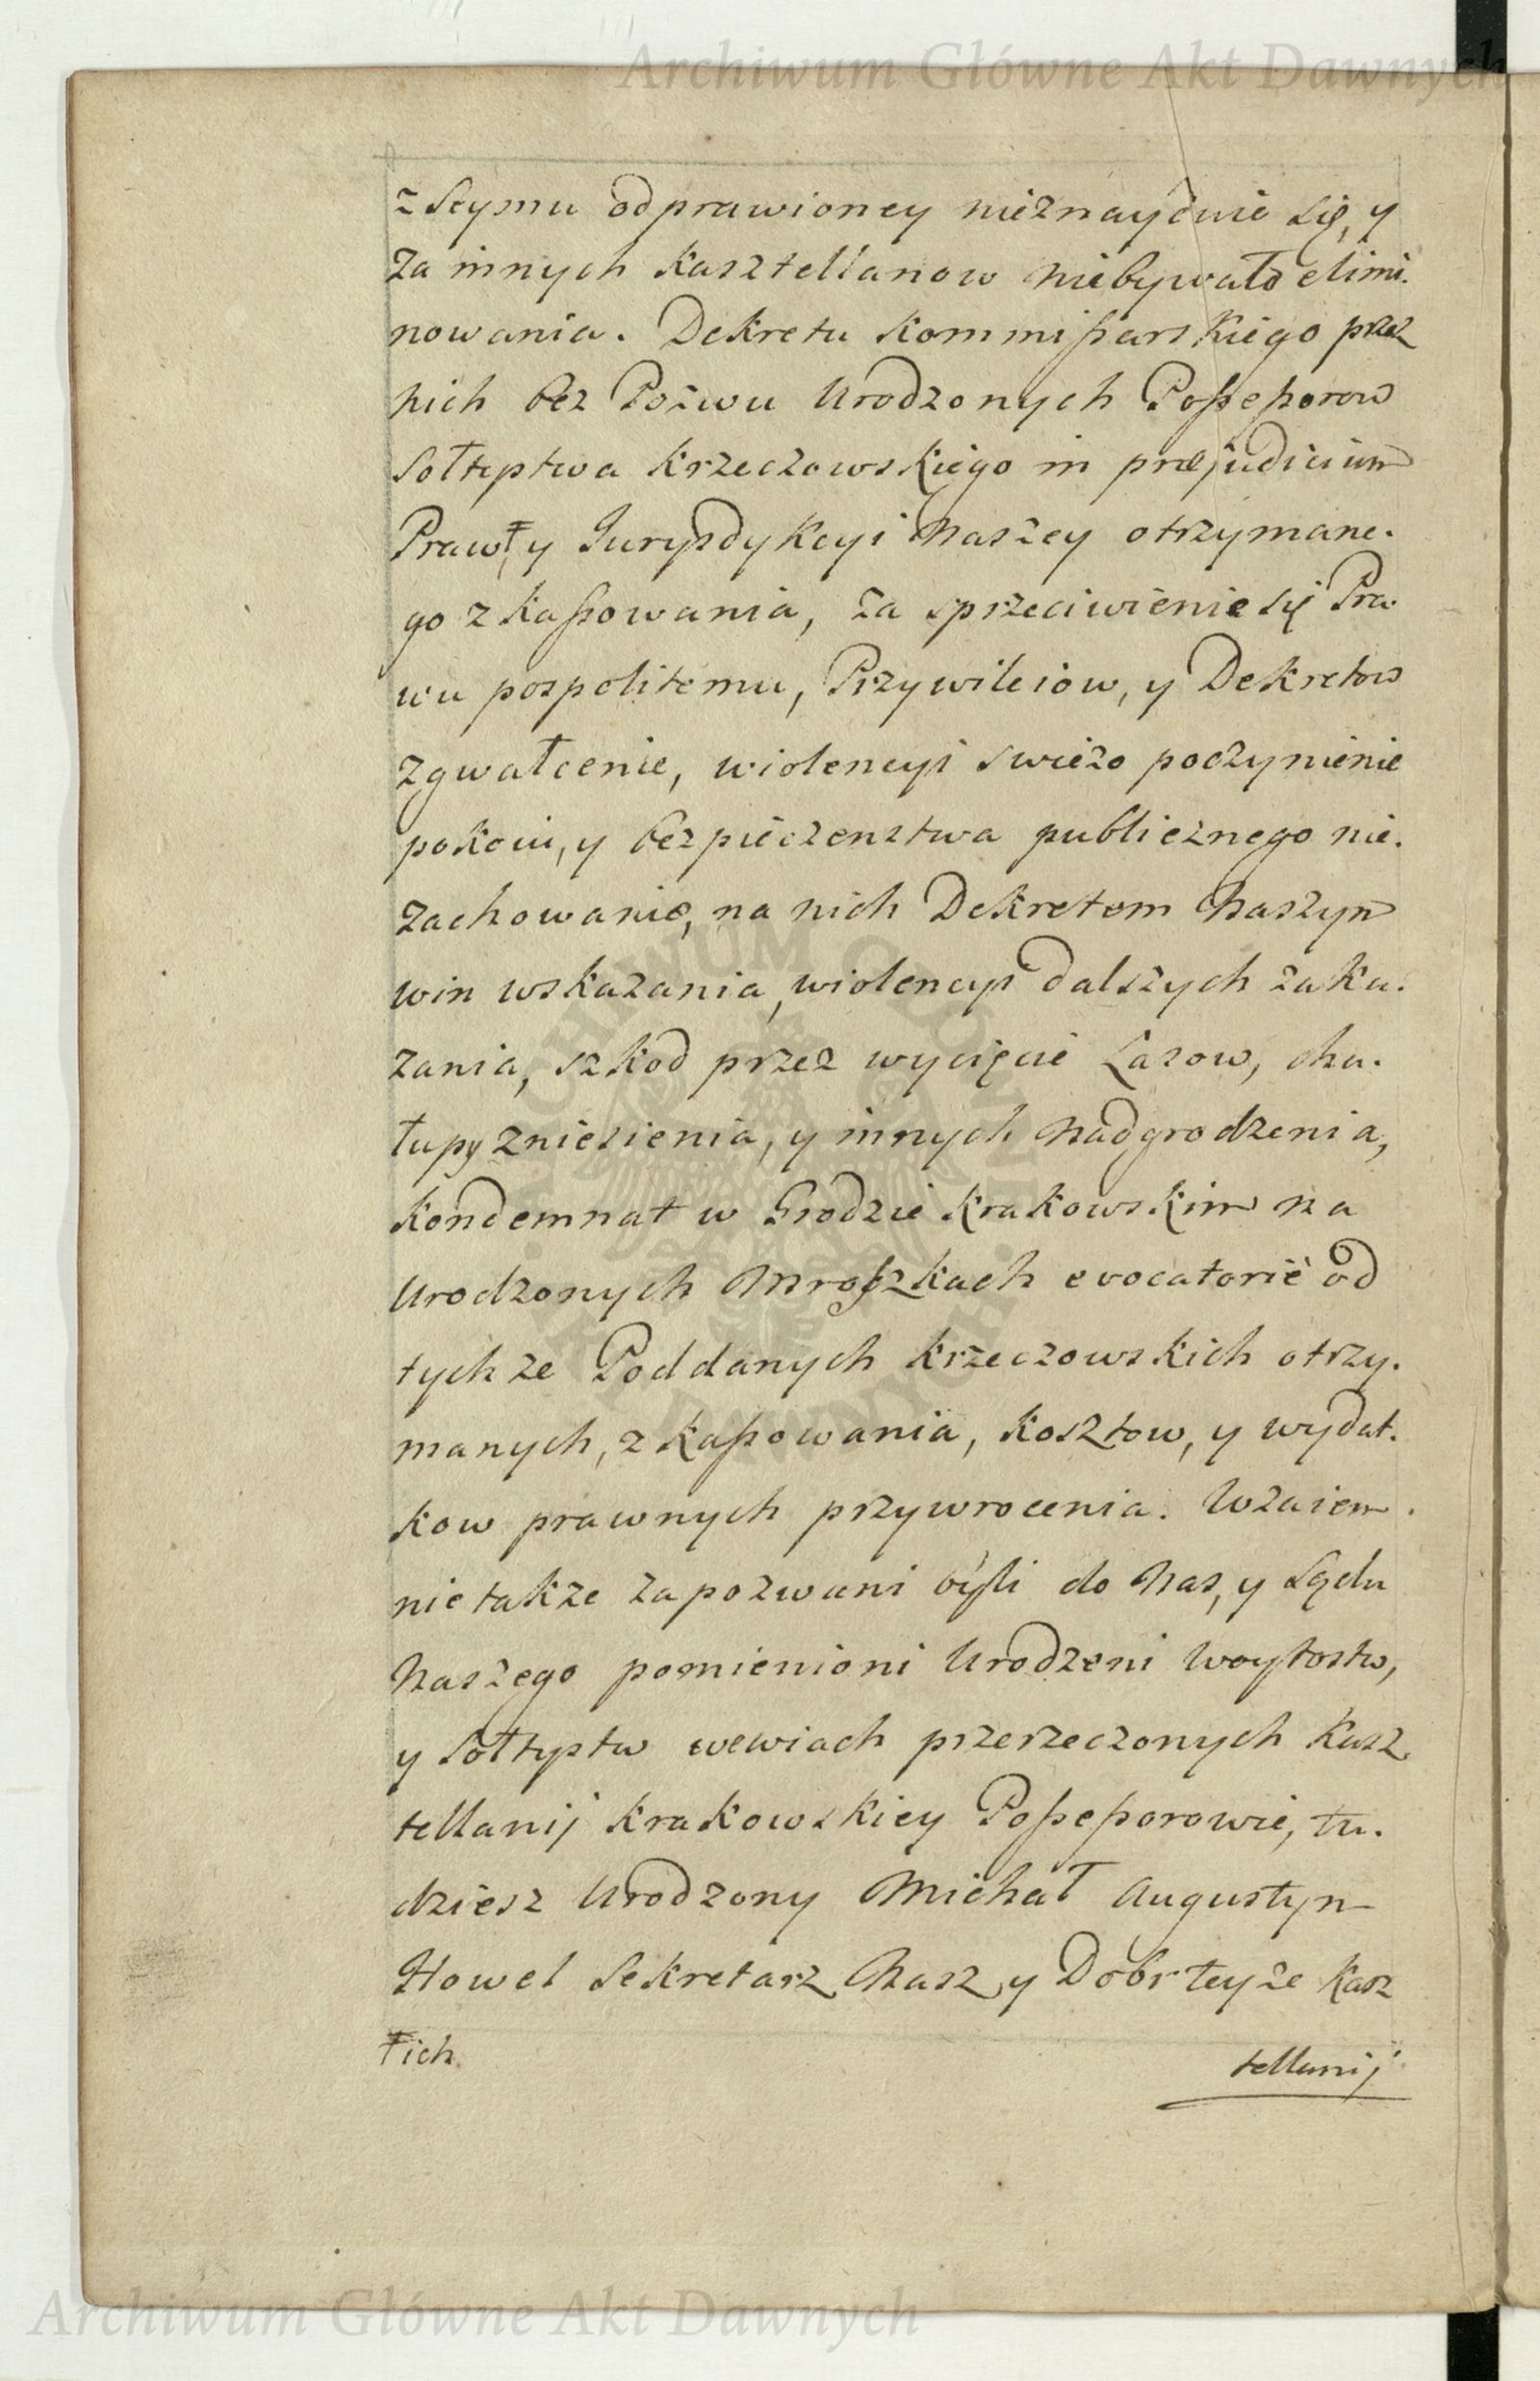 Archiwum Główne Akt Dawnych
z Seymu odprawioney nieznayduie się, y
za innych Kasztellanow niebywało elimi.
nowania. Dekretu Kommißarskiego przez
nich bez Pozwu Urodzonych Poßeßorow
Sołtystwa Krzeczowskiego in præjudicium
Praw ⌿, y Jurysdykcyi Naszey otrzymane.
go zkaßowania, za sprzeciwienie się Pra
wu pospolitemu, Przywileiow, y Dekretow
zgwałcenie, wiolencyi swiezo poczynienie
pokoiu, y bezpieczenstwa publicznego nie.
zachowanie, na nich Dekretem Naszym
win wskazania, wiolencyi dalszych zaka.
zania, szkod przez wycięcie Lasow, cha.
łupy zniesienia, y innych nadgrodzenia,
Kondemnat w Grodzie Krakowskim na
Urodzonych Mroßzkach evocatorie od
tychze Poddanych Krzeczowskich otrzy.
manych, zkaßowania, Kosztow, y wydat.
kow prawnych przywrocenia. Wzaiem.
nie takze zapozwani byli do Nas, y Sądu
Naszego pomienioni Urodzeni Woytostw,
y Sołtystw wewsiach przerzeczonych Kasz
tellanij Krakowskiey Poßeßorowie, tu.
dziesz Urodzony Michał Augustyn
Howel Sekretarz Nasz, y Dobr teyze Kasz
⌿ ich
tellanij
Archiwum Główne Akt Dawnych